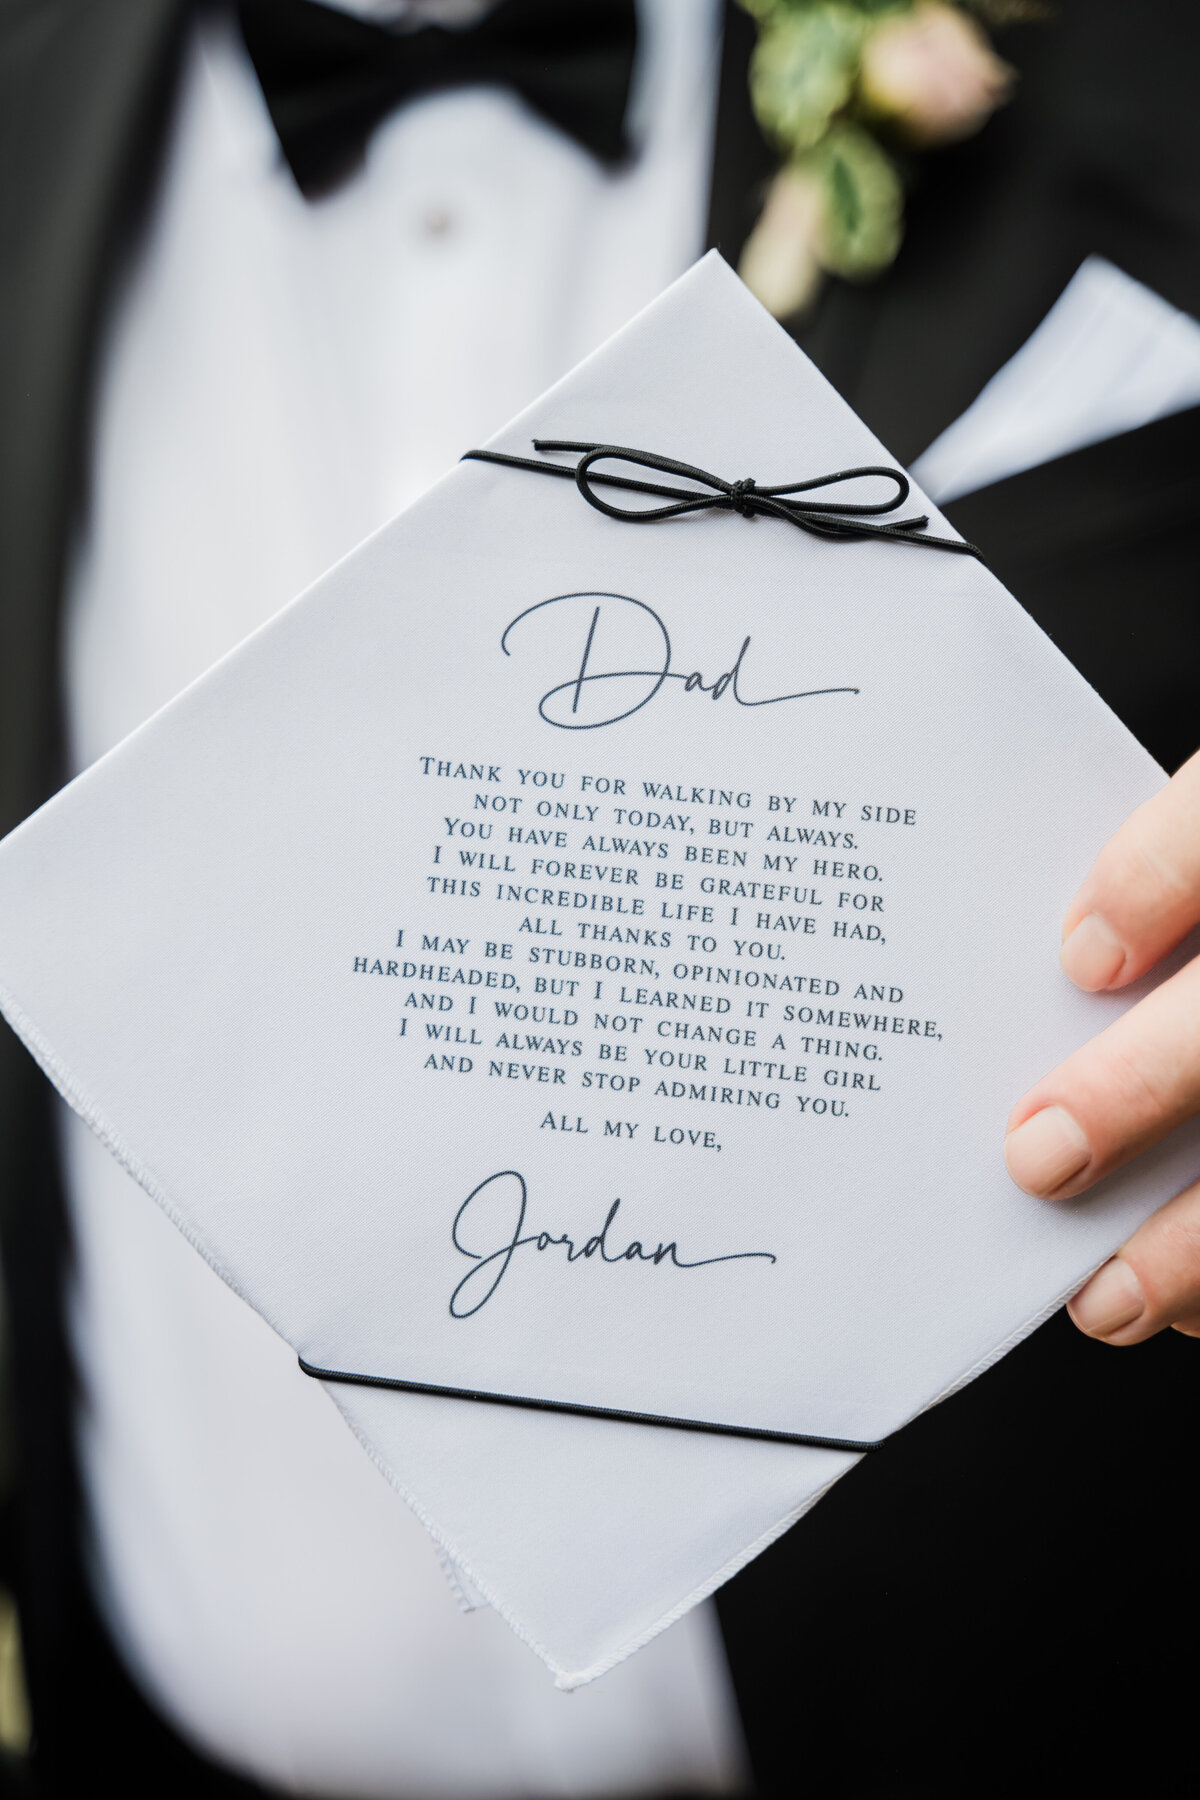 Dad
THANK YOU FOR WALKING BY MY SIDE
NOT ONLY TODAY, BUT ALWAYS.
YOU HAVE ALWAYS BEEN MY HERO.
I WILL FOREVER BE GRATEFUL FOR
THIS INCREDIBLE LIFE I HAVE HAD,
ALL THANKS TO YOU.
I MAY BE STUBBORN, OPINIONATED AND
HARDHEADED, BUT I LEARNED IT SOMEWHERE,
AND I WOULD NOT CHANGE A THING.
I WILL ALWAYS BE YOUR LITTLE GIRL
AND NEVER STOP ADMIRING YOU.
ALL MY LOVE,
Jordan